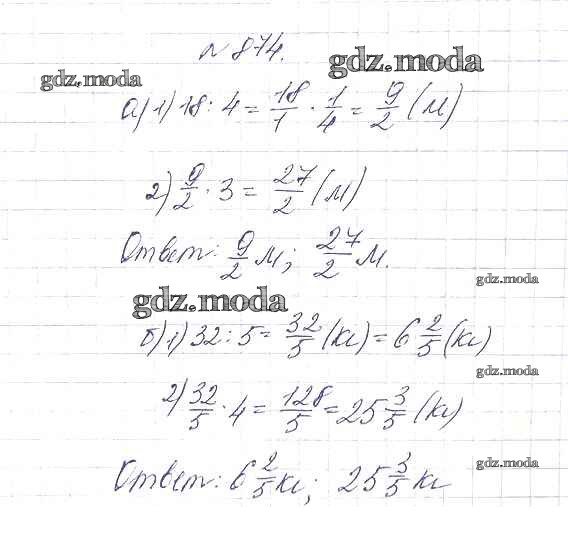 № 874.
gdz.moda
gdz.moda
а) 1) 18 : 4 = 18/1 · 1/4 = 9/2 (м)
2) 9/2 · 3 = 27/2 (м)
Ответ: 9/2 м; 27/2 м.
gdz.moda
gdz.moda
б) 1) 32 : 5 = 32/5 (кг) = 6 2/5 (кг)
gdz.moda
2) 32/5 · 4 = 128/5 = 25 3/5 (кг)
Ответ: 6 2/5 кг; 25 3/5 кг
gdz.moda